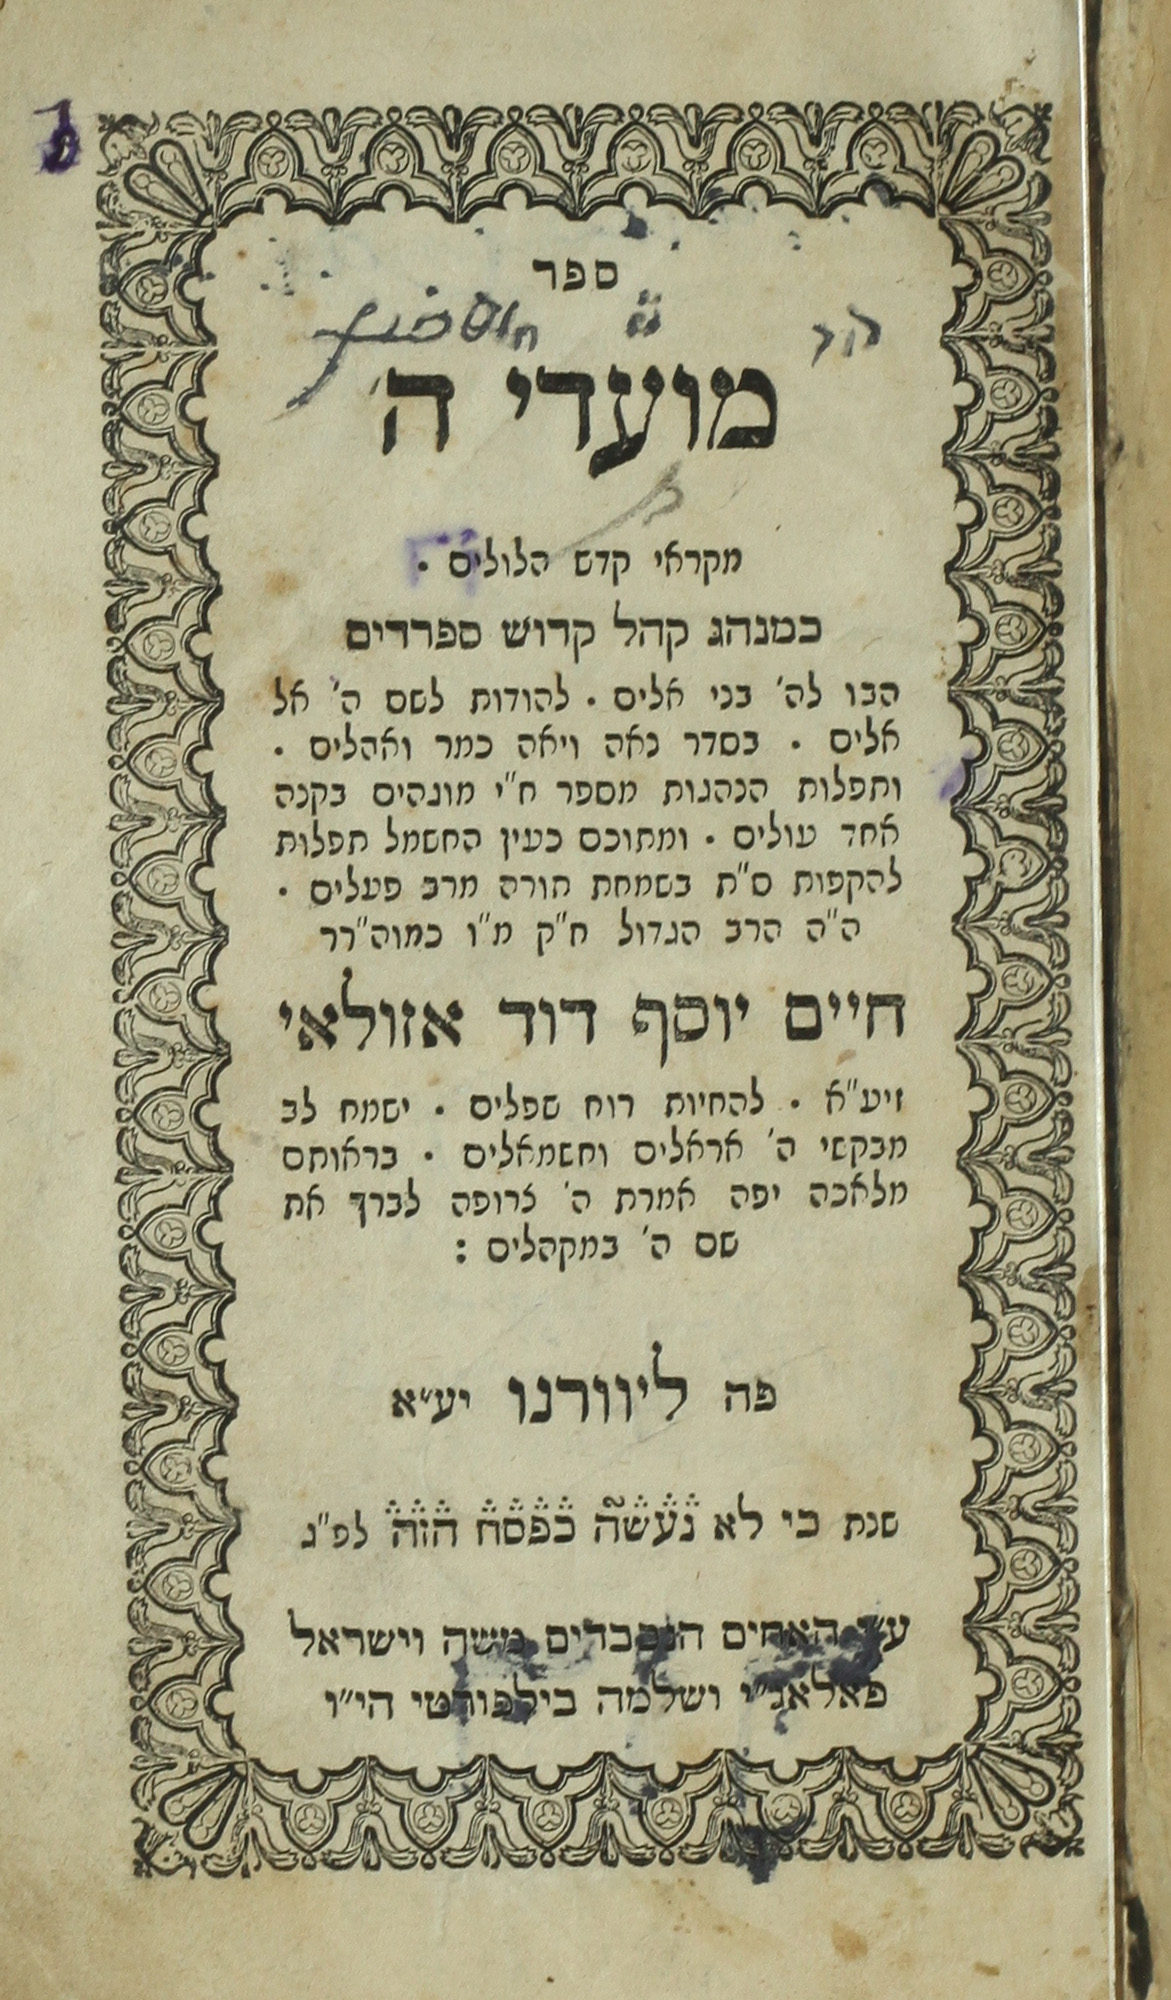 ספר
מועדי ה'
מקראי קדש הלולים •
כמנהג קהל קדוש ספרדים
הבו לה' בני אלים • להודות לשם ה' אל
אלים • בסדר נאה ויאה כמר ואהלים •
ותפלות הנהגות מספר ח"י מונהים בקנה
אחד עולים • ומתוכם כעין החשמל תפלות
להקפות ס"ת בשמחת תורה מרב פעלים •
ה"ה הרב הגדול ח"ק מ"ו כמוה"רר
חיים יוסף דוד אזולאי
זיע"א • להחיות רוח שפלים • ישמח לב
מבקשי ה' אראלים וחשמאלים • בראותם
מלאכה יפה אמרת ה' צרופה לברך את
שם ה' במקהלים :
פה ליוורנו יע"א
שנת כי לא נעשה כפסח הזה לפ"ג
ע"י האחים הנכבדים משה וישראל
פאלאג"י ושלמה בילפורטי הי"ו